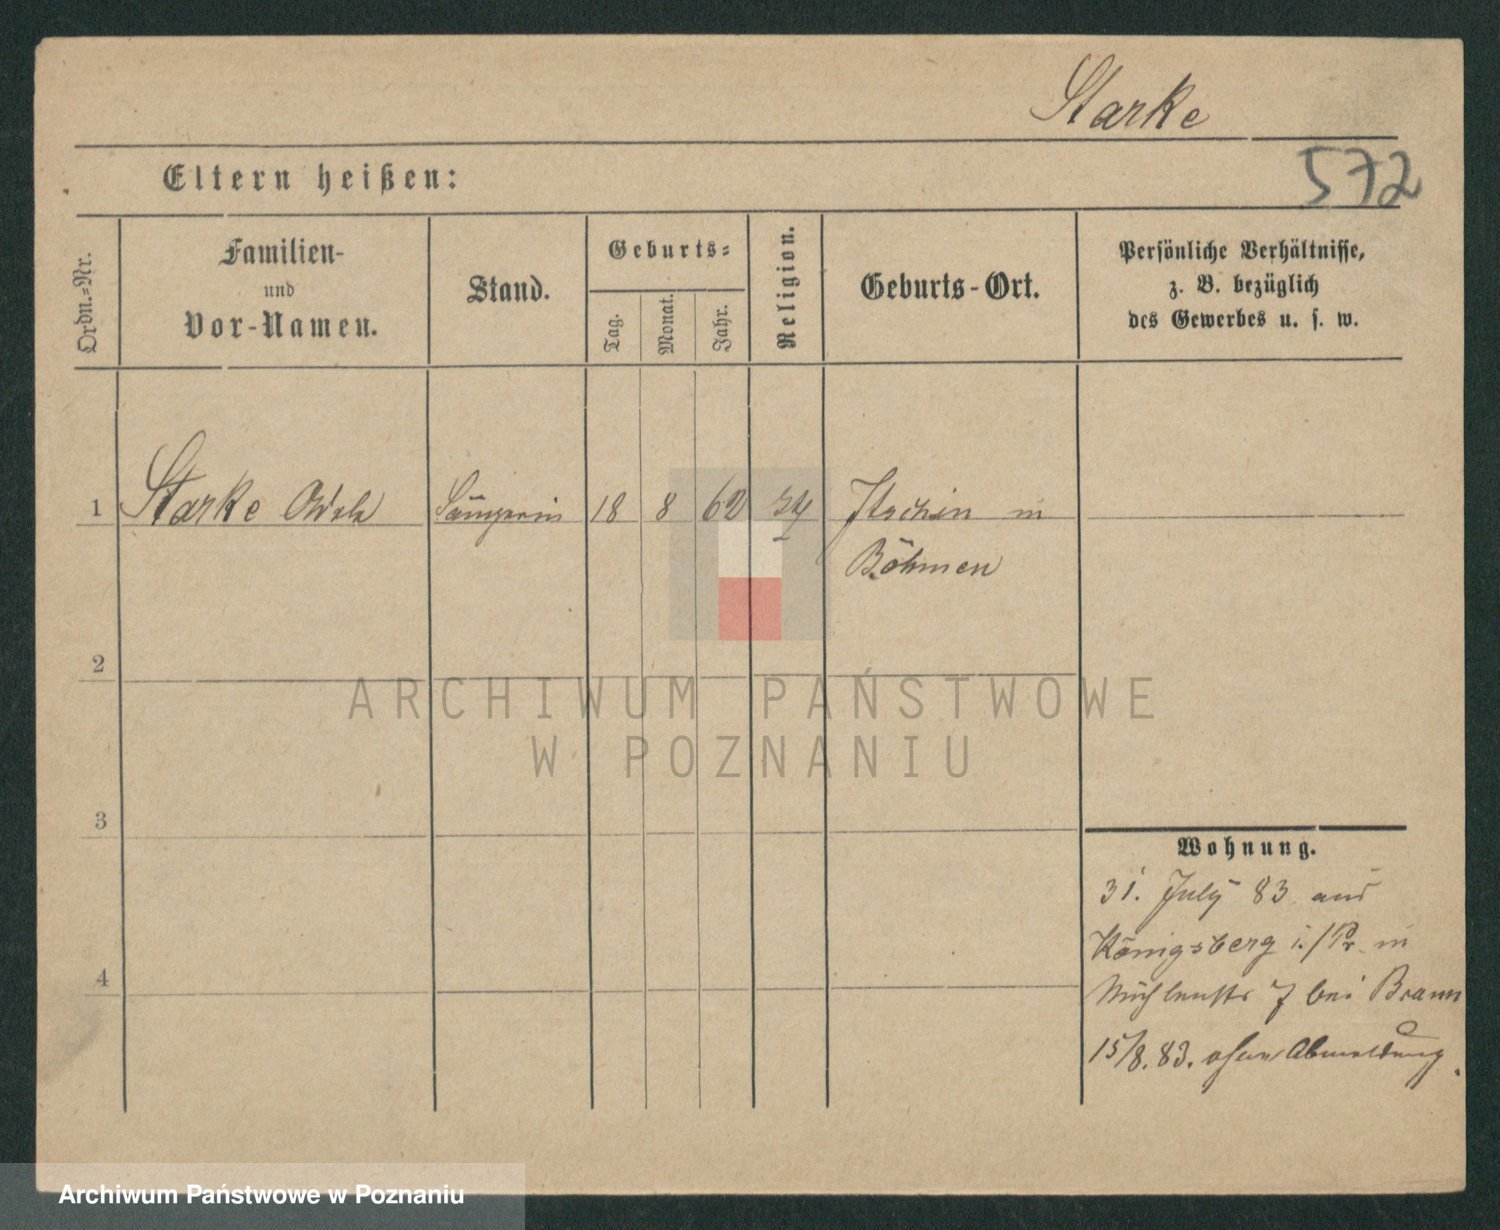 Starke
572
Eltern heißen:
Ordn.=Nr.
Familien-
und
Vor-Namen.
Stand.
Geburts=
Tag.
Monat.
Jahr.
Religion.
Geburts-Ort.
Persönliche Verhältnisse,
z. B. bezüglich
des Gewerbes u. s. w.
1 Starke Sängerin 18 8 62 in
Böhmen
2
3
4
Wohnung.
31. July 83 aus
Königsberg i./Pr. in
Mühlenstr 7 bei Braun
15/8. 83. ohne Abmeldung.
ARCHIWUM PAŃSTWOWE
W POZNANIU
Archiwum Państwowe w Poznaniu